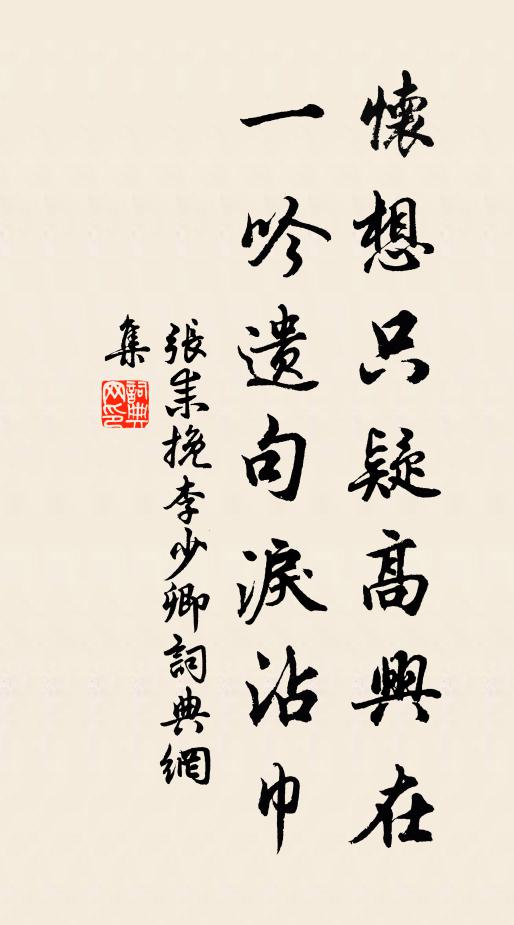 懷想只疑高興在
一吟遺句淚沾巾
張耒挽李少卿詞典網
集
詞典
网印